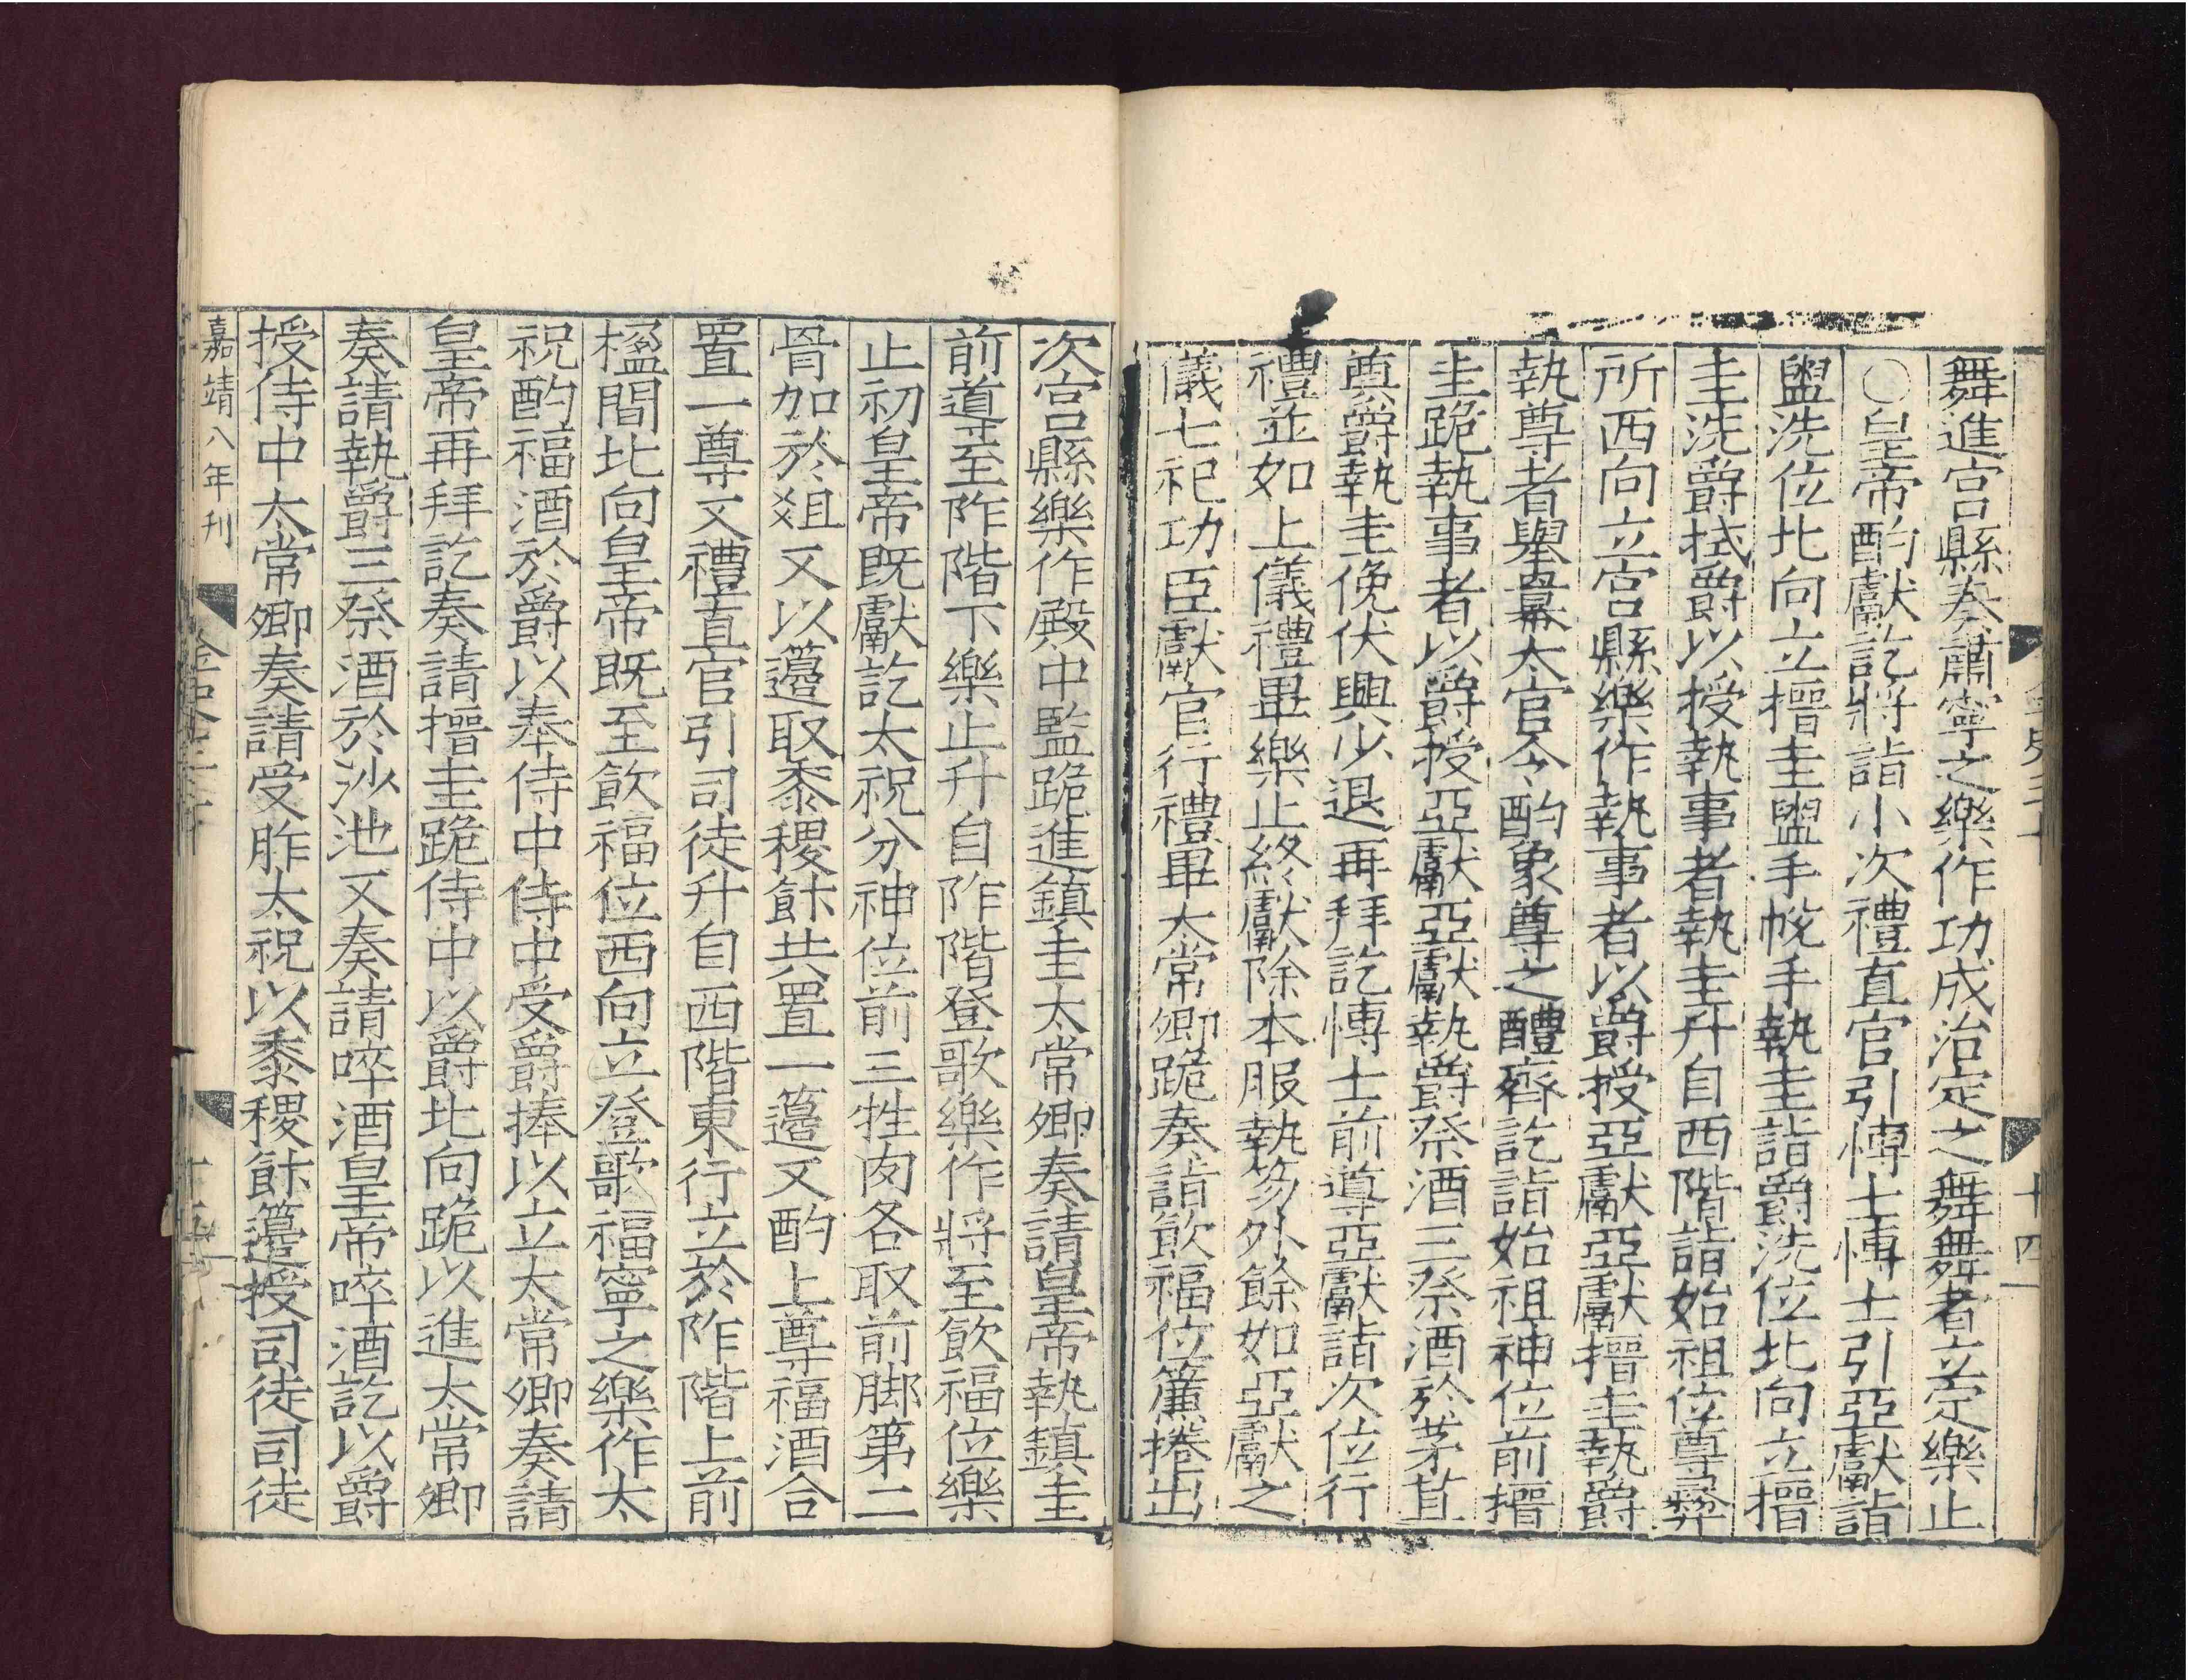 舞進宮縣奏肅寧之樂作功成治定之舞舞者立定樂止
○皇帝酌獻訖將詣小次禮直官引博士博士引亞獻詣
盥洗位北向立搢圭盥手帨手執圭詣爵洗位北向立搢
圭洗爵拭爵以授執事者執圭升自西階詣始祖位尊彛
所西向立宮縣樂作執事者以爵授亞獻亞獻搢圭執爵
執尊者舉冪太官令酌象尊之醴齊訖詣始祖神位前搢
圭跪執事者以爵授亞獻亞獻執爵祭酒三祭酒於茅苴
奠爵執圭俛伏興少退再拜訖博士前導亞獻詣次位行
禮並如上儀禮畢樂止終獻除本服執笏外餘如亞獻之
儀七祀功臣獻官行禮畢太常卿跪奏詣飲福位簾捲出
十四
次宮縣樂作殿中監跪進鎮圭太常卿奏請皇帝執鎮圭
前導至阼階下樂止升自阼階登歌樂作將至飲福位樂
止初皇帝既獻訖太祝分神位前三牲肉各取前脚第二
骨加於爼又以籩取黍稷餅共置一籩又酌上尊福酒合
置一尊又禮直官引司徒升自西階東行立於阼階上前
楹間北向皇帝既至飲福位西向立登歌福寧之樂作太
祝酌福酒於爵以奉侍中侍中受爵捧以立太常卿奏請
皇帝再拜訖奏請搢圭跪侍中以爵北向跪以進太常卿
奏請執爵三祭酒於沙池又奏請啐酒皇帝啐酒訖以爵
授侍中太常卿奏請受胙太祝以黍稷餅籩授司徒司徒
嘉靖八年刊